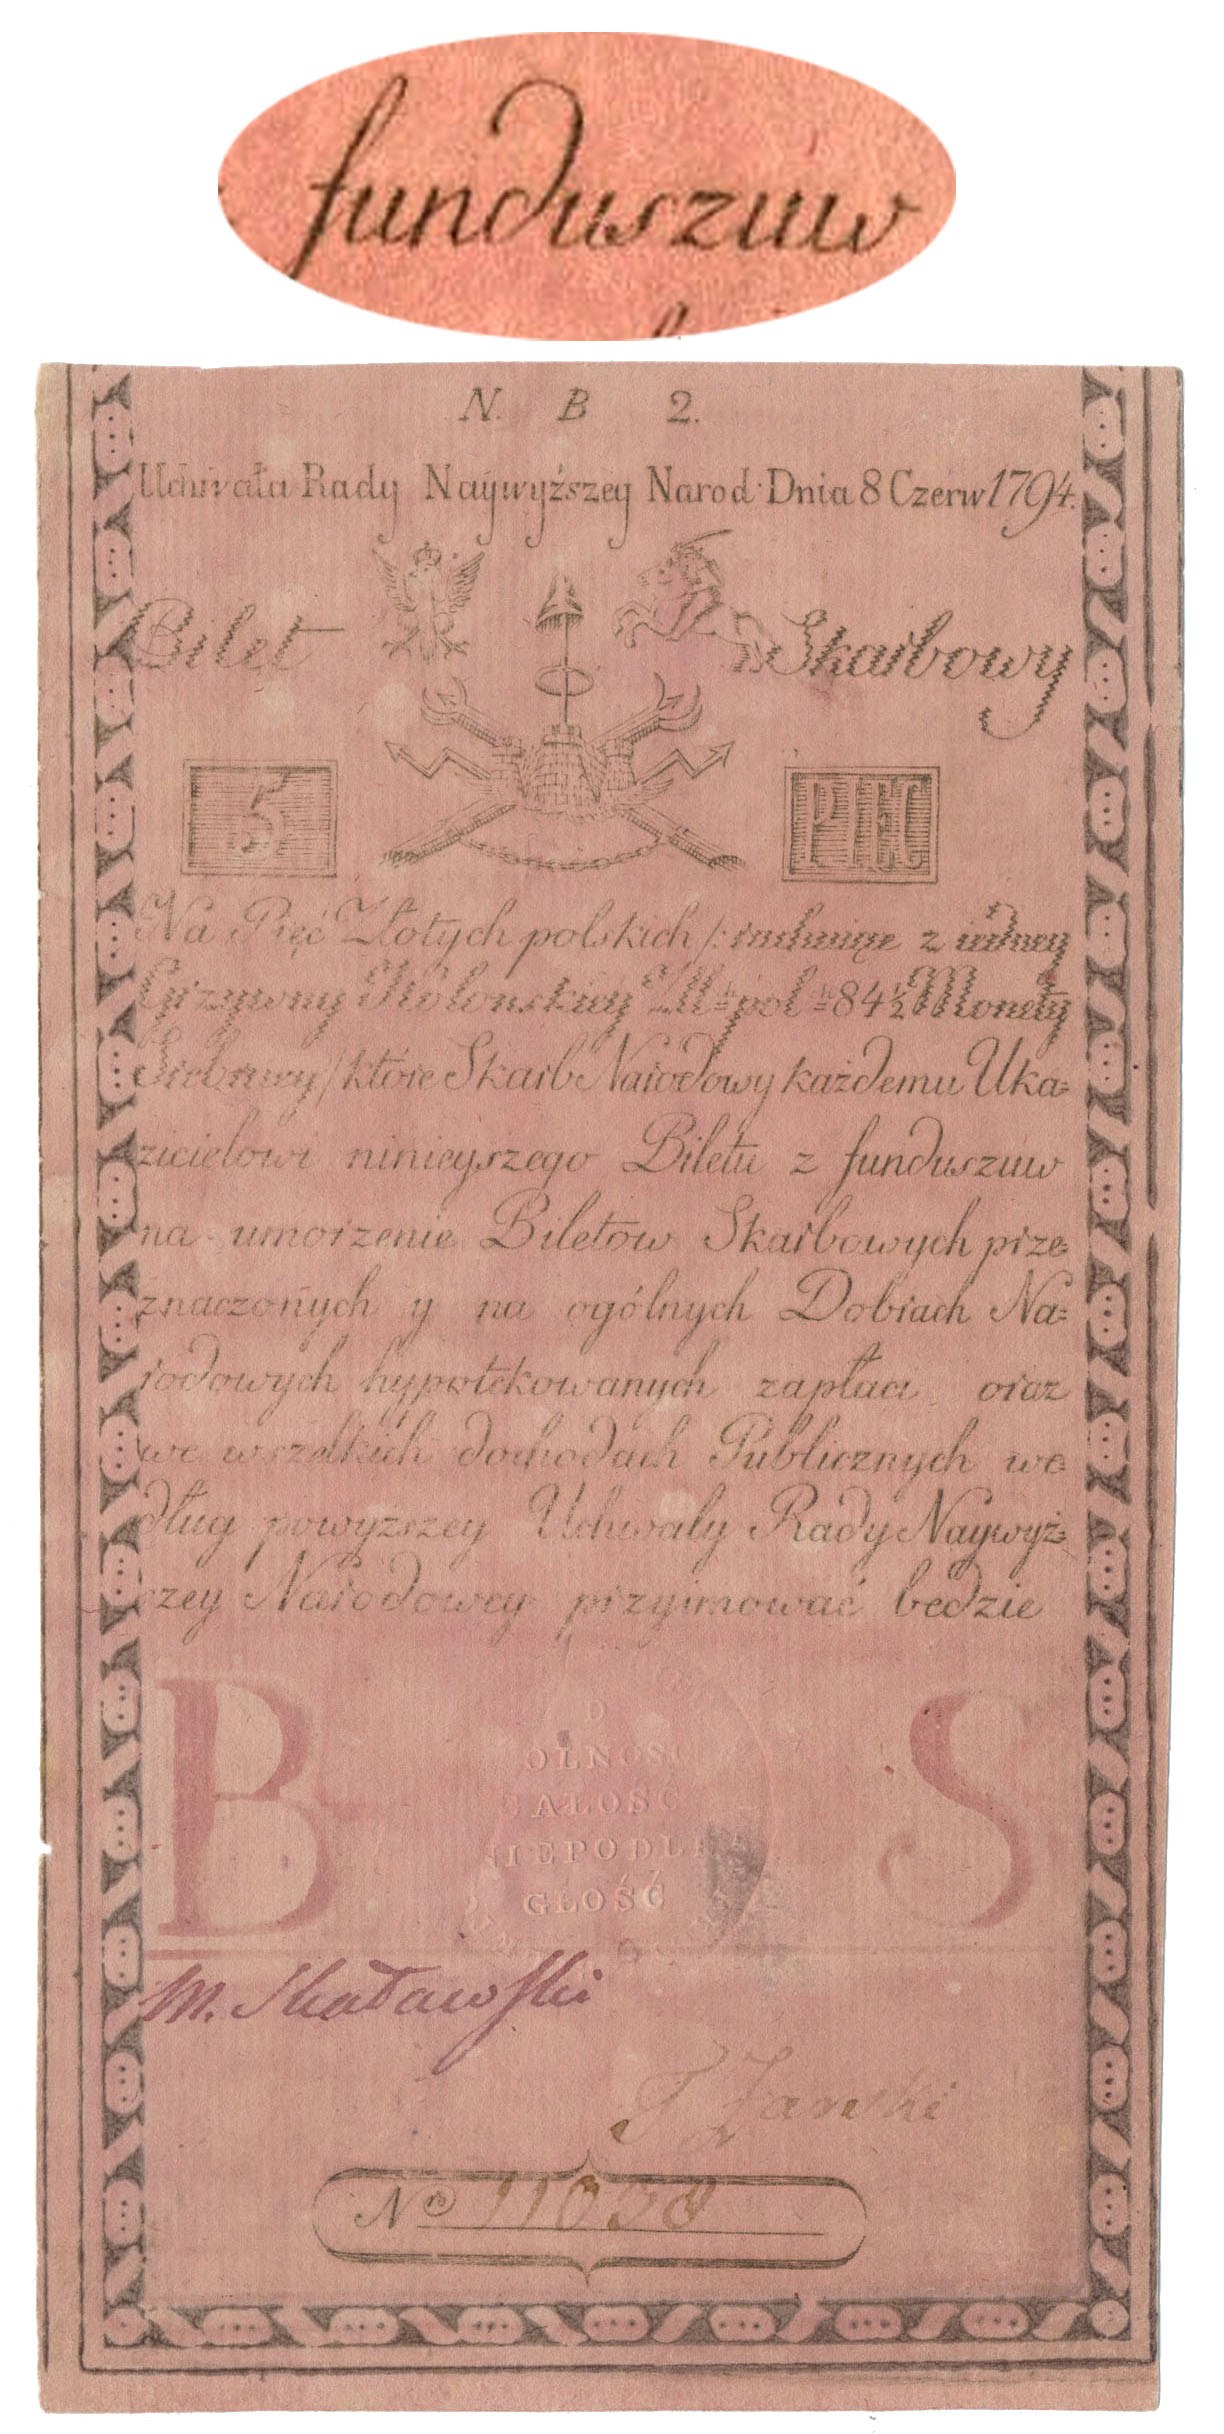 funduszuw
N. B 2.
Uchwała Rady Naywyższey Narod. Dnia 8 Czerw 1794.
Bilet Skarbowy
5 PIĘC
Na Pięć Złotych polskich /: rachuiąc z iedney
Grzywny Kolonskiey Zł: pol: 84 1/2 Monety
Srebrney / które Skarb Narodowy każdemu Uka=
zicielowi ninieyszego Biletu z funduszuw
na umorzenie Biletow Skarbowych prze=
znaczonych y na ogólnych Dobrach Na=
rodowych hypotekowanych zapłaci oraz
we wszelkich dochodach Publicznych we=
dług powyższey Uchwały Rady Naywyż=
szey Narodowey przyimować będzie
B S
OLNOSC
CAŁOSC
NIEPODLE
GŁOŚĆ
M. Skaławski
Zawski
Nro 11038